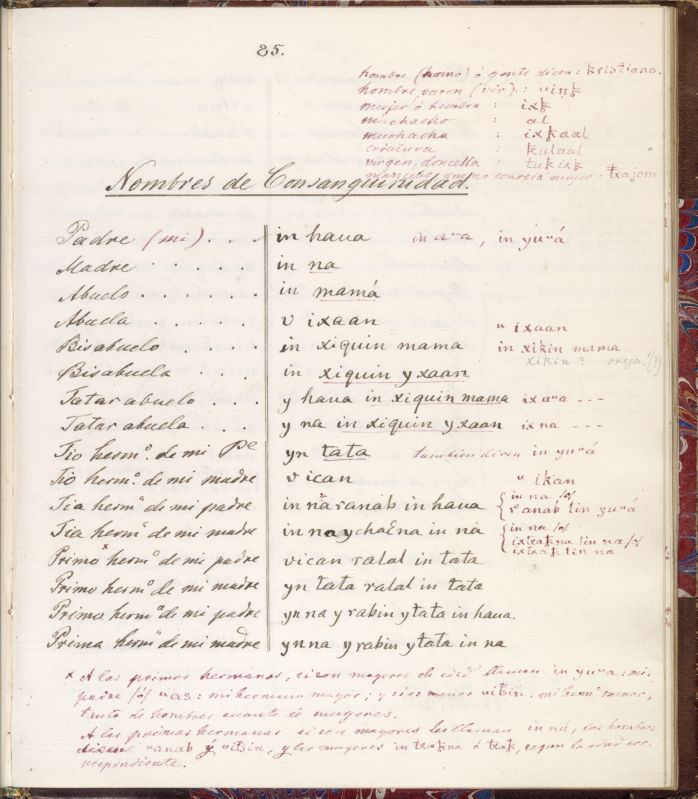 85.
hombre (homo) ó gente dicen : kristiano.
hombre varon (vir) : vink
mujer ó hembra : ixk
muchacho : al
muchacha : ixkaal
criatura : kulaal
virgen, doncella : tukixk
mancebo, que no conoce mujer : txajom
Nombres de Consanguinidad.
Padre (mi) . . . in haua in aua, in yuuá
Madre . . . . . in na
Abuelo . . . . . in mamá
Abuela . . . . . v ixaan u ixaan
Bisabuelo . . . . in xiquin mama in xikin mama
xikin ? oreja
Bisabuela . . . in xiquin yxaan
Tatarabuelo . . . y haua in xiquin mama ixaua - - -
Tatarabuela . . . y na in xiquin yxaan ixna - - -
Tio hermo. de mi Pe yn tata tambien dicen in yuuá
Tio hermo. de mi madre vican u ikan
Tia herma de mi padre in na ranab in haua { in na /ó/
ranab tin yuuá
Tia herma de mi madre in na ychaĉna in ná { in na /ó/
ixtxakna tin na /ó/
ixtxak tin na
Primo x hermo. de mi padre vican ralal in tata
Primo hermo. de mi madre yn tata ralal in tata
Prima herma de mi padre yn na y rabin y tata in haua.
Prima herma de mi madre yn na y rabin y tata in na
x A los primos hermanos, si son mayores de edad llaman in yuua : mi
padre /ó/ uas : mi hermano mayor ; y si es menor uitzin : mi herm. menor,
tanto de hombres cuanto de mugeres.
A las primas hermanas si son mayores las llaman in ná ; los hombres
dicen uanab y uitzin, y las mugeres in txakna ó txak, segun la edad cor-
respondiente.